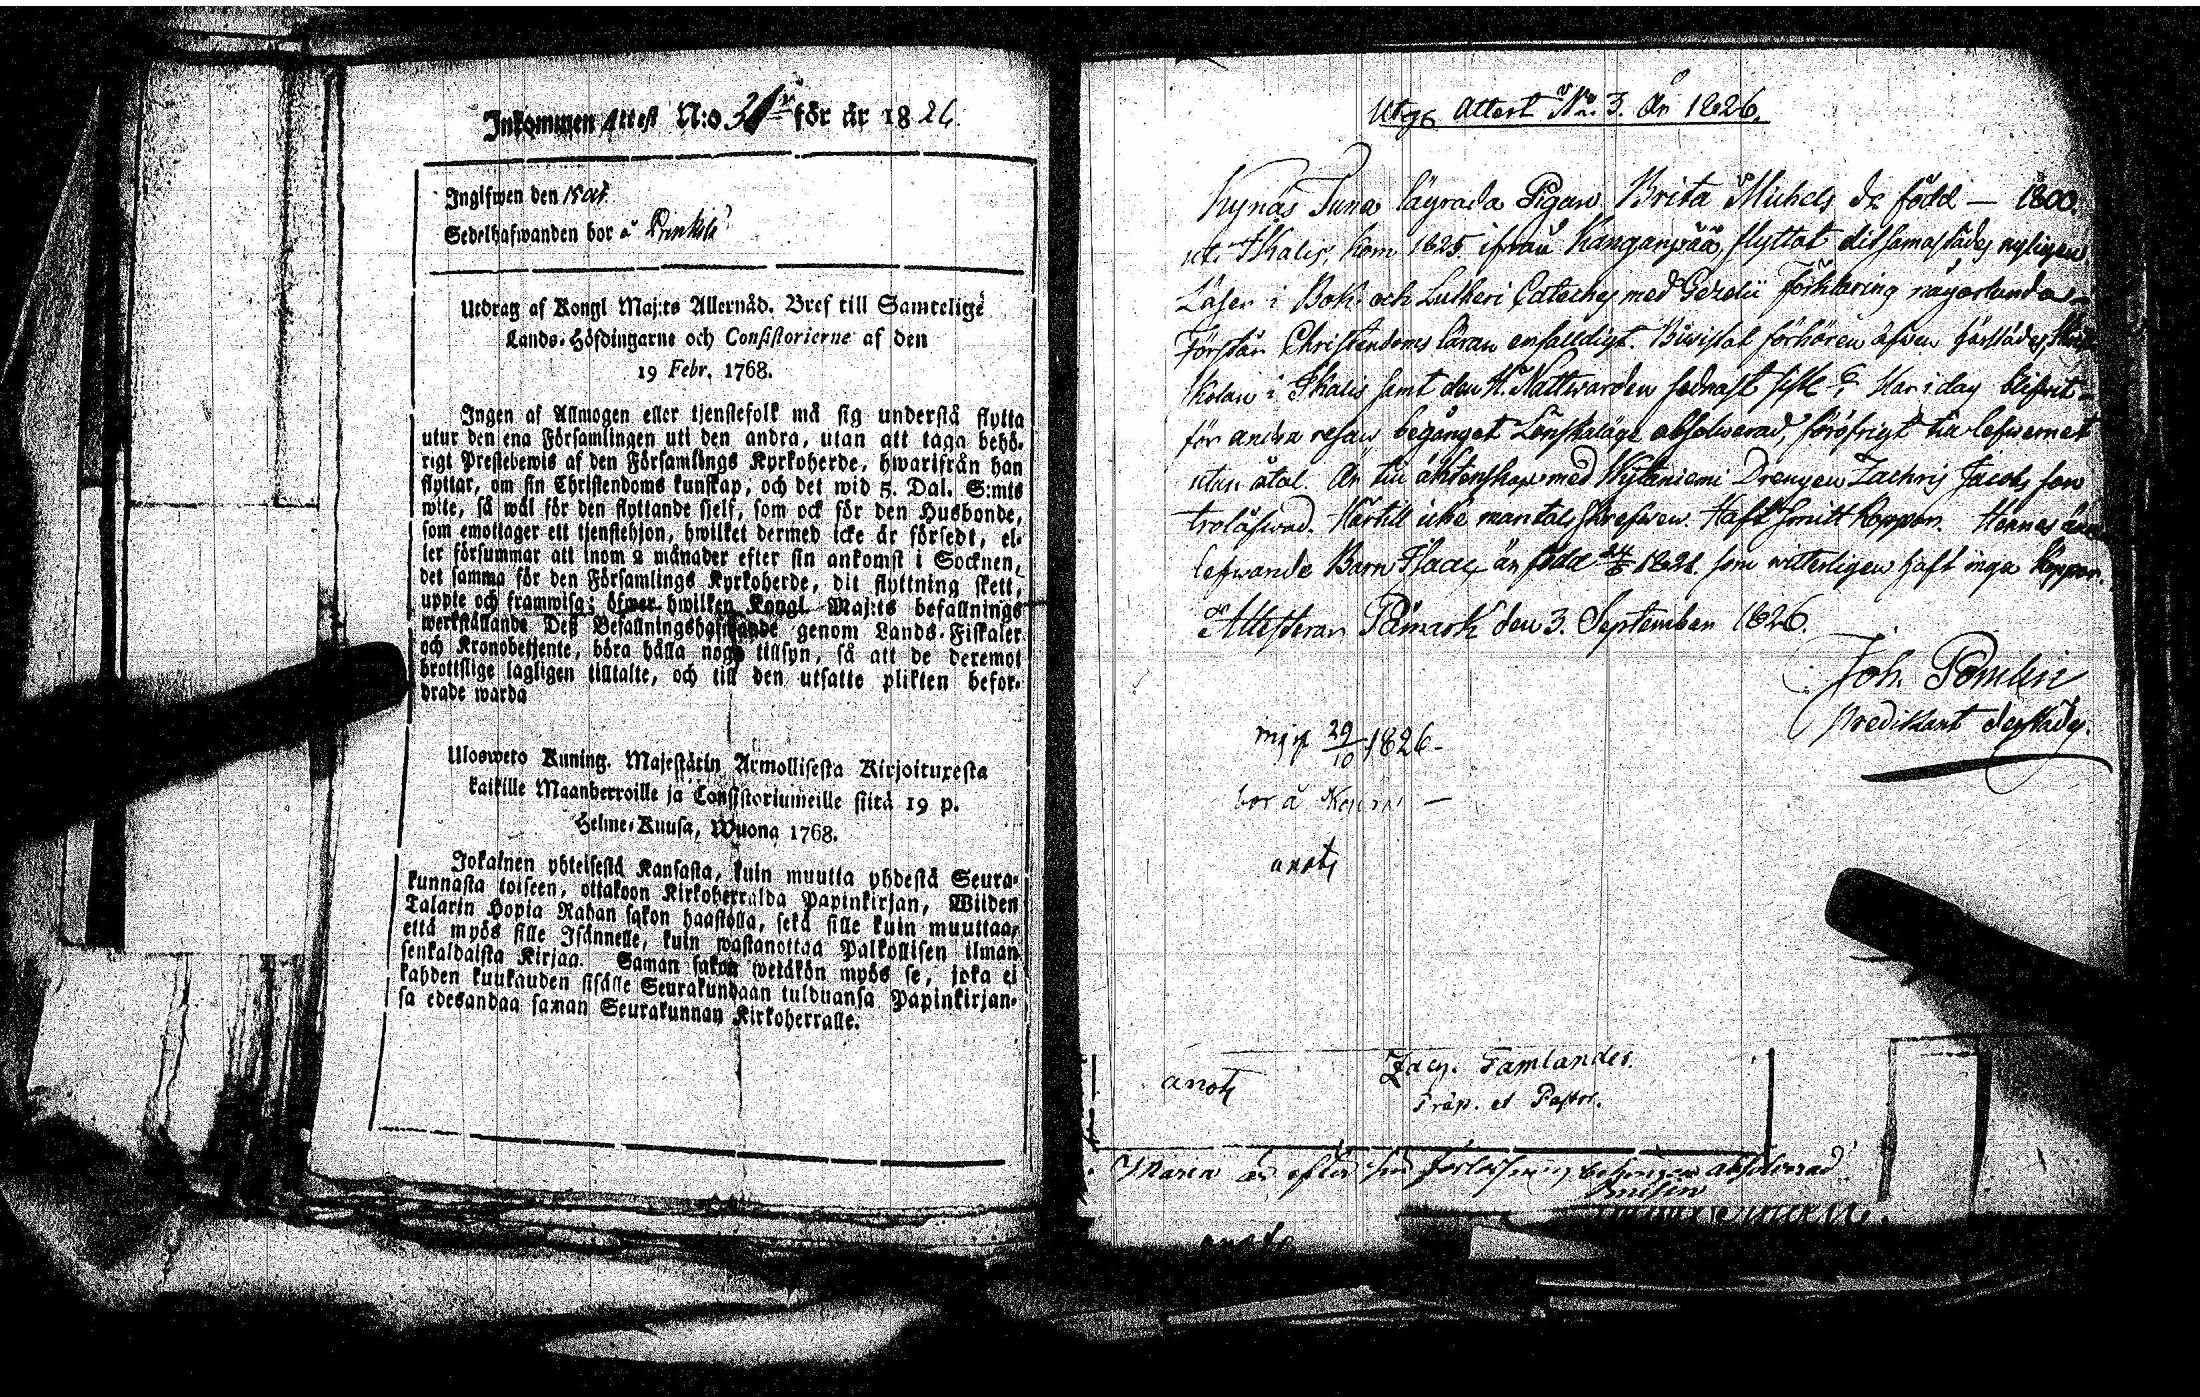 Inkommen Attest N:o för år 1826.
Ingifwen den
Sedelhafwanden bor å
Utdrag af Kongl Maj:ts Allernåd. Bref till Samtelige
Lands-Höfdingarne och Consistorierne af den
19 Febr. 1768.
Ingen af Allmogen eller tjenstefolk må sig understå flytta
utur den ena Församlingen uti den andra, utan att taga behö-
rigt Prestebewis af den Församlings Kyrkoherde, hwarifrån han
flyttar, om sin Christendoms kunskap, och det wid 5. Dal. S:mts
wite, så wäl för den flyttande sielf, som ock för den Husbonde,
som emottager ett tjenstehjon, hwilket dermed icke är försedt, el-
ler försummar att inom 2 månader efter sin ankomst i Socknen,
det samma för den Församlings Kyrkoherde, dit flyttning skett,
uppte och framwisa; öfwer hwilken Kongl Maj:ts befallnings
werkställande Deß Befallningshafwande genom Lands-Fiskaler
och Kronobetjente, böra hålla noga tillsyn, så att de deremot
brottslige lagligen tilltalte, och till den utsatte plikten befor-
drade warda
Uloswето Kuning. Majestätin Armollisesta Kirjoituxesta
kaikille Maanherroille ja Consistoriumeille siitä 19 p.
Helme-Kuusa, Wuona 1768.
Jokainen yhteisestä Kansasta, kuin muutta yhdestä Seura-
kunnasta toiseen, ottakoon Kirkoherralda Papinkirjan, Wiiden
Talarin Hopia Rahan sakon haastolla, sekä sille kuin muuttaa,
että myös sille Isännelle, kuin wastanottaa Palkollisen ilman
senkaldaista Kirjaa. Saman sakon wetäkön myös se, joka ei
kahden kuukauden sisälle Seurakundaan tulduansa Papinkirjan-
sa edesandaa saman Seurakunnan Kirkoherralle.
Utgs Attest No. 3. År 1826.
Kynäs Tuna lägrada Pigan Brita Michels dr född — 1800.
uti Ikalis, kom 1825 ifrån Kangarpää, flyttat dit samastädes nyligen,
Läser i Bok och Lutheri Cateches med Gezelii förklaring någorlunda
Förstår Christendoms läran enfalldigt. Biwistat förhören äfwen
skolan i Ikalis samt den H. Nattwarden sednast sistl. Har i day
för andra resan begånget Lönskaläge absolverad, för öfrigt till lefwernet
utan åtal. Är till äktenskap med Drengen Zachris Jacobs son
trolåfwad. Härtill icke mantals skrefwen. Haft Smitt koppor. Hennes
lefwande Barn Isaac är född 24/6 1821 som witterligen haft inga koppor.
Attesterar Påmark den 3. September 1826.
Joh. Pomlin
Predikant derstädes.
29/10 1826-
bor å
anots
Zach. Famlander
Präp. et Pastor.
anots
Maria är efter sin förlossning absolverad